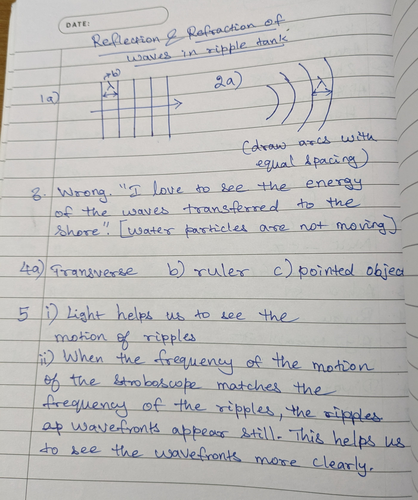 DATE:
Reflection & Refraction of
waves in ripple tank
1a) b) λ
2a) λ
(draw arcs with
equal spacing)
3. Wrong. "I love to see the energy
of the waves transferred to the
shore". [water particles are not moving]
4a) Transverse b) ruler c) pointed objec
5 i) Light helps us to see the
motion of ripples
ii) When the frequency of the motion
of the stroboscope matches the
frequency of the ripples, the ripples
ap wavefronts appear still. This helps us
to see the wavefronts more clearly.